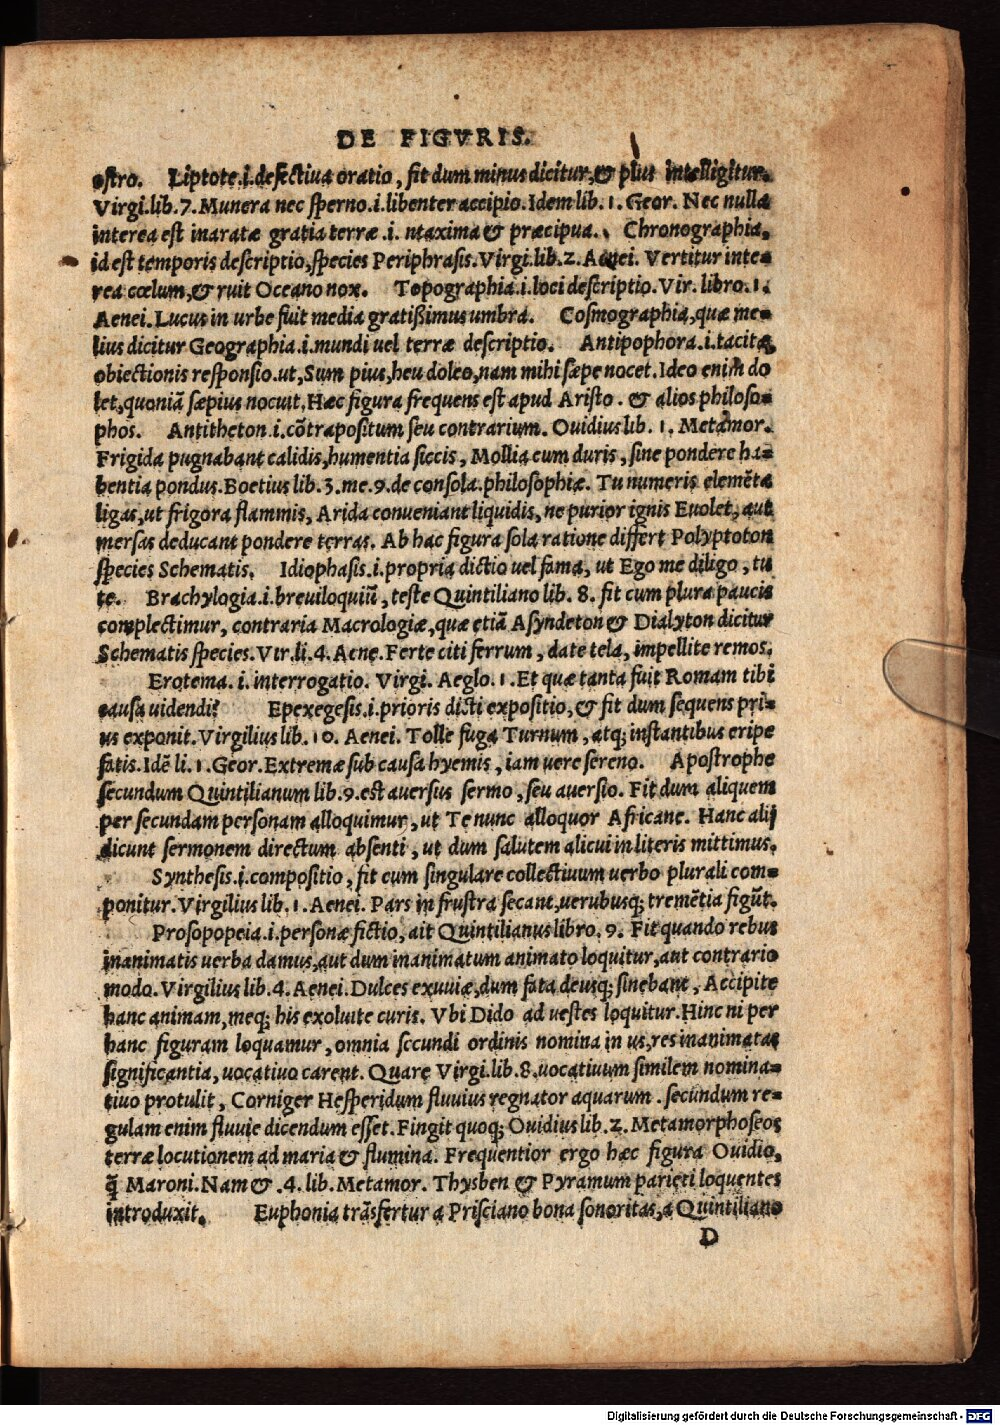 DE FIGVRIS.
ostro. Liptote.i.defectiua oratio, fit dum minus dicitur,& plus intelligitur.
Virgi.lib.7.Munera nec sperno.i.libenter accipio.Idem lib.1.Geor. Nec nulla
interea est inaratæ gratia terræ .i. maxima & præcipua. Chronographia,
id est temporis descriptio,species Periphrasis.Virgi.lib.2.Aenei. Vertitur inte=
rea cœlum,& ruit Oceano nox. Topographia.i.loci descriptio.Vir. libro.1.
Aenei.Lucus in urbe fuit media gratißimus umbra. Cosmographia,quæ me=
lius dicitur Geographia.i.mundi uel terræ descriptio. Antipophora.i.tacitæ
obiectionis responsio.ut,Sum pius,heu doleo,nam mihi sæpe nocet.Ideo enim do
let,quoniã sæpius nocuit.Hæc figura frequens est apud Aristo. & alios philoso=
phos. Antitheton.i.cõtrapositum seu contrarium. Ouidius lib. 1. Metamor.
Frigida pugnabant calidis,humentia siccis, Mollia cum duris, sine pondere ha=
bentia pondus.Boetius lib.3.me.9.de consola.philosophiæ. Tu numeris elemẽta
ligas,ut frigora flammis, Arida conueniant liquidis, ne purior ignis Euolet, aut
mersas deducant pondere terras. Ab hac figura sola ratione differt Polyptoton
species Schematis. Idiophasis.i.propria dictio uel fama, ut Ego me diligo, tu
te. Brachylogia.i.breuiloquiũ, teste Quintiliano lib. 8. fit cum plura paucis
complectimur, contraria Macrologiæ,quæ etiã Asyndeton & Dialyton dicitur
Schematis species.Vir.li.4.Aene.Ferte citi ferrum, date tela, impellite remos.
Erotema. i. interrogatio. Virgi. Aeglo.1.Et quæ tanta fuit Romam tibi
causa uidendi? Epexegesis.i.prioris dicti expositio,& fit dum sequens pri=
us exponit.Virgilius lib.10. Aenei. Tolle fuga Turnum, atq; instantibus eripe
fatis.Idẽ li.1.Geor.Extremæ sub casu hyemis, iam uere sereno. Apostrophe
secundum Quintilianum lib.9.est auersus sermo, seu auersio. Fit dum aliquem
per secundam personam alloquimur, ut Te nunc alloquor Africane. Hanc alij
dicunt sermonem directum absenti, ut dum salutem alicui in literis mittimus.
Synthesis.i.compositio, fit cum singulare collectiuum uerbo plurali com=
ponitur.Virgilius lib.1.Aenei. Pars in frustra secant,uerubusq; tremẽtia figũt.
Prosopopeia.i.personæ fictio, ait Quintilianus libro.9. Fit quando rebus
inanimatis uerba damus,aut dum inanimatum animato loquitur,aut contrario
modo.Virgilius lib.4.Aenei.Dulces exuuiæ,dum fata deusq; sinebant, Accipite
hanc animam,meq; his exoluite curis. Vbi Dido ad uestes loquitur.Hinc ni per
hanc figuram loquamur, omnia secundi ordinis nomina in us,res inanimatas
significantia, uocatiuo carent. Quare Virgi.lib.8.uocatiuum similem nomina=
tiuo protulit, Corniger Hesperidum fluuius regnator aquarum. secundum re=
gulam enim fluuie dicendum esset.Fingit quoq; Ouidius lib.2.Metamorphoseos
terræ locutionem ad maria & flumina. Frequentior ergo hæc figura Ouidio,
q̃ Maroni.Nam & .4. lib.Metamor. Thysben & Pyramum parieti loquentes
introduxit. Euphonia trãsfertur a Prisciano bona sonoritas,a Quintiliano
D
Digitalisierung gefördert durch die Deutsche Forschungsgemeinschaft - DFG